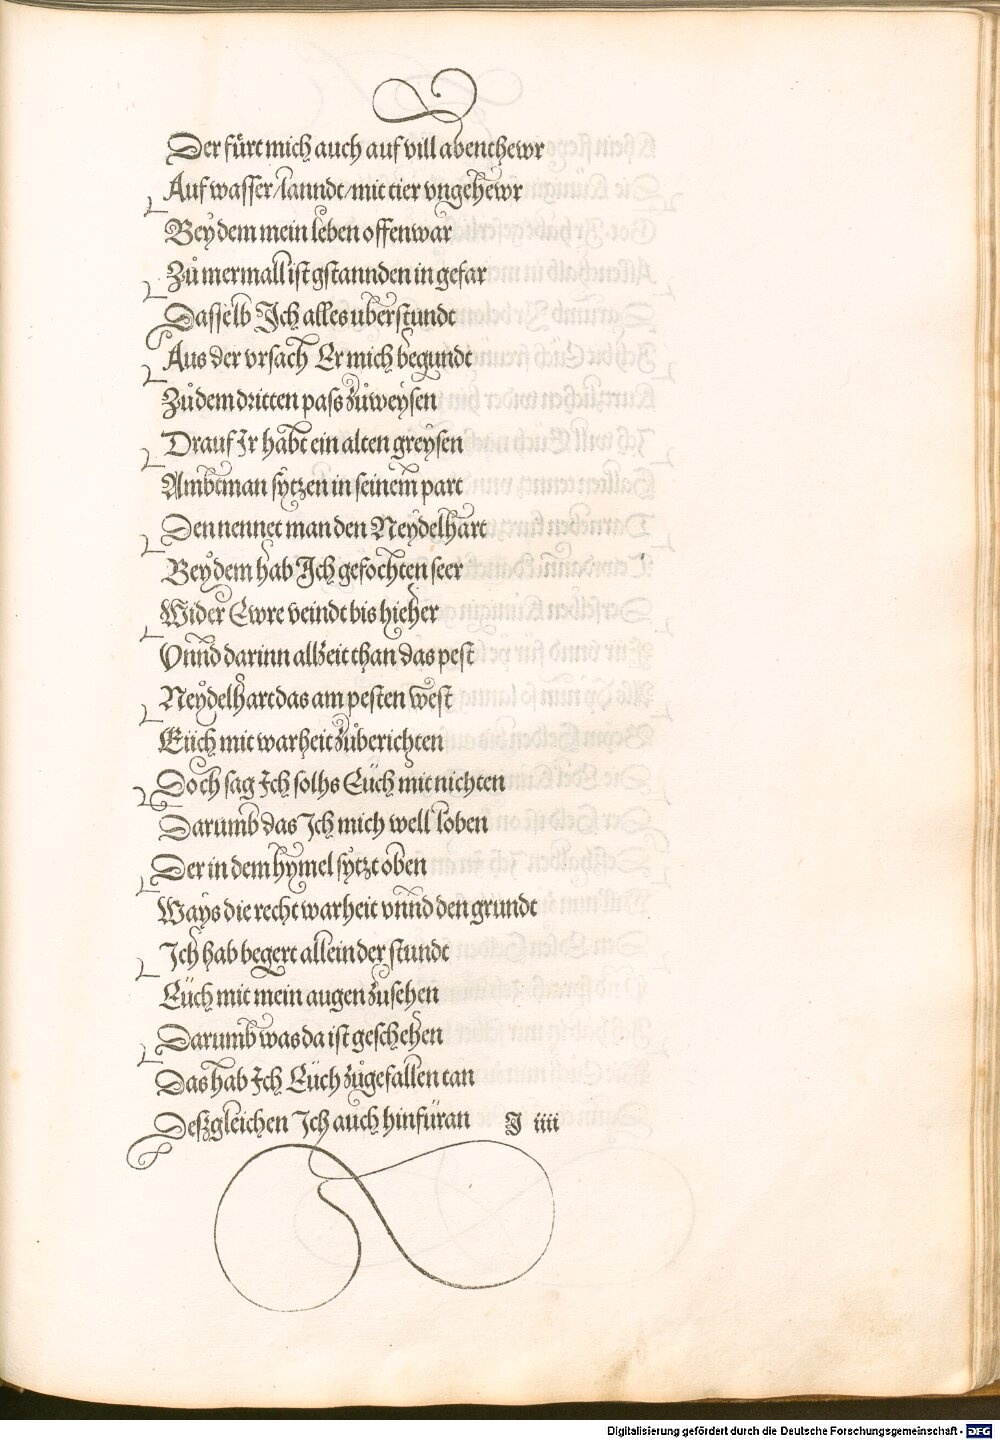 Der fürt mich auch auf vill abenthewr
Auf wasser/lanndt/mit tier vngehewr
Bey dem mein leben offenwar
Zů mermall ist gstannden in gefar
Dasselb Ich alles uberstundt
Aus der vrsach Er mich begundt
Zů dem dritten pass zůweysen
Drauf Ir habt ein alten greysen
Ambtman sytzen in seinem part
Den nennet man den Neydelhart
Bey dem hab Ich gefochten seer
Wider Ewre veindt bis hieher
Vnnd darinn allzeit than das pest
Neydelhart das am pesten west
Eüch mit warheit zůberichten
Doch sag Ich solhs Eüch mit nichten
Darumb das Ich mich well loben
Der in dem hymel sytzt oben
Ways die recht warheit vnnd den grundt
Ich hab begert allein der stundt
Eüch mit mein augen zusehen
Darumb was da ist geschehen
Das hab Ich Eüch zůgefallen tan
Deßgleichen Ich auch hinfüran J iiii
Digitalisierung gefördert durch die Deutsche Forschungsgemeinschaft - DFG